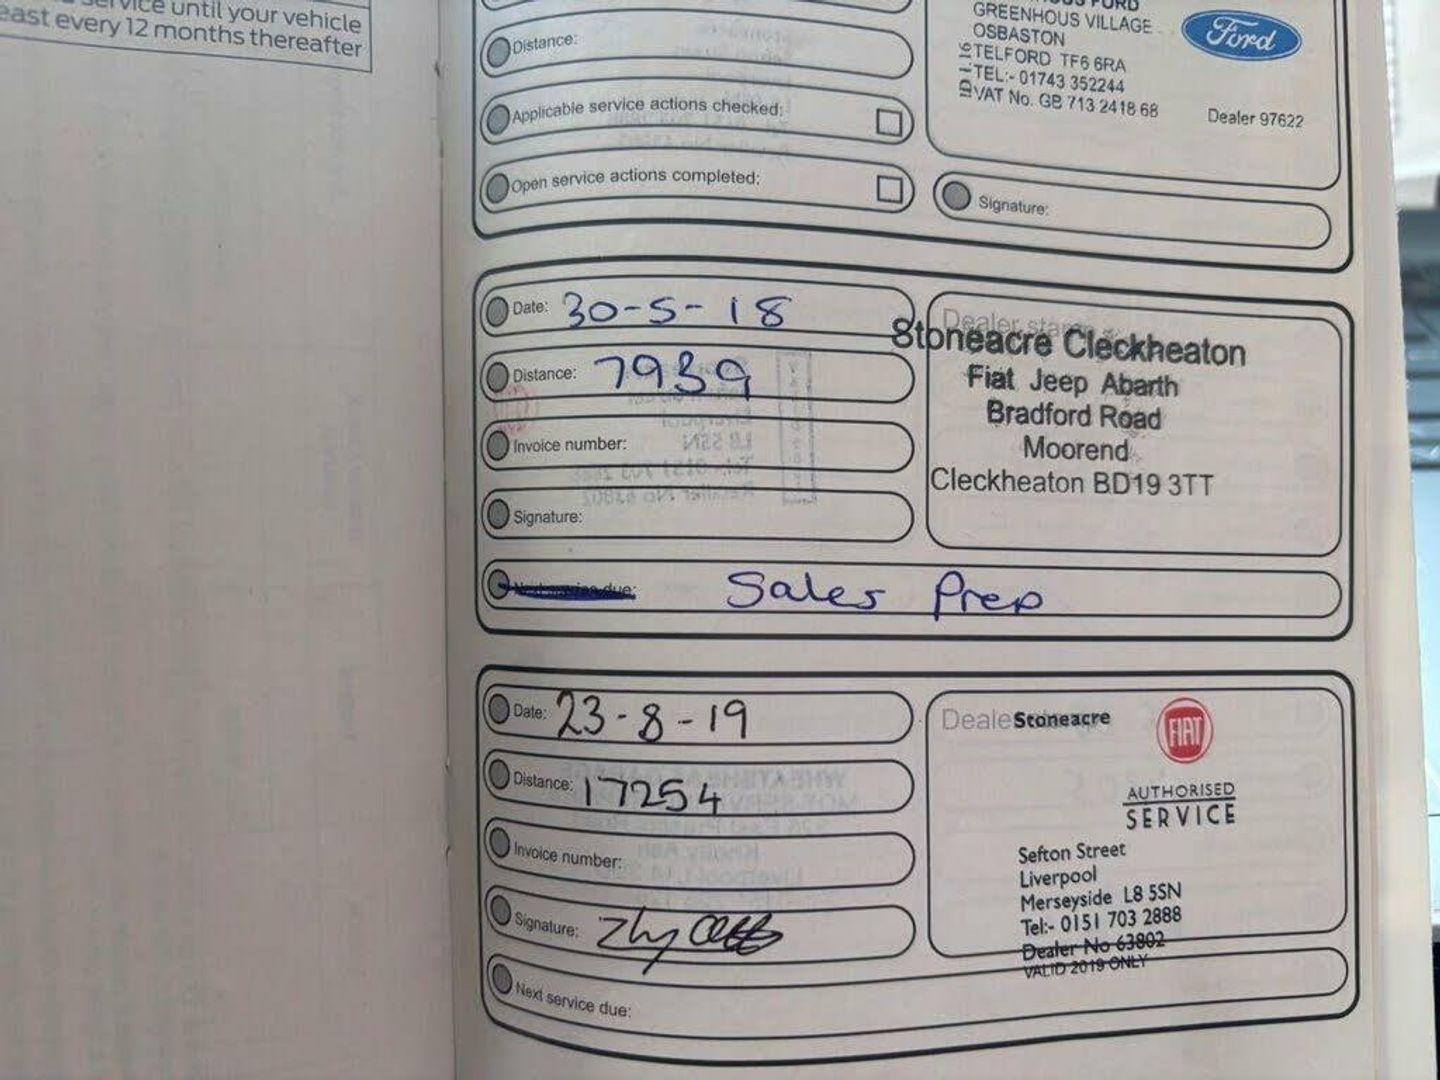 service until your vehicle
east every 12 months thereafter
Distance:
Applicable service actions checked:
Open service actions completed:
FORD
GREENHOUS VILLAGE
OSBASTON
TELFORD TF6 6RA
TEL:- 01743 352244
VAT No. GB 713 2418 68
Ford
Dealer 97622
Signature:
Date: 30-5-18
Distance: 7939
Invoice number:
Signature:
Dealer stamp
Stoneacre Cleckheaton
Fiat Jeep Abarth
Bradford Road
Moorend
Cleckheaton BD19 3TT
Next service due: Sales Prep
Date: 23-8-19
Distance: 17254
Invoice number:
Signature:
Next service due:
Stoneacre
FIAT
AUTHORISED
SERVICE
Sefton Street
Liverpool
Merseyside L8 5SN
Tel:- 0151 703 2888
Dealer No 63802
VALID 2019 ONLY